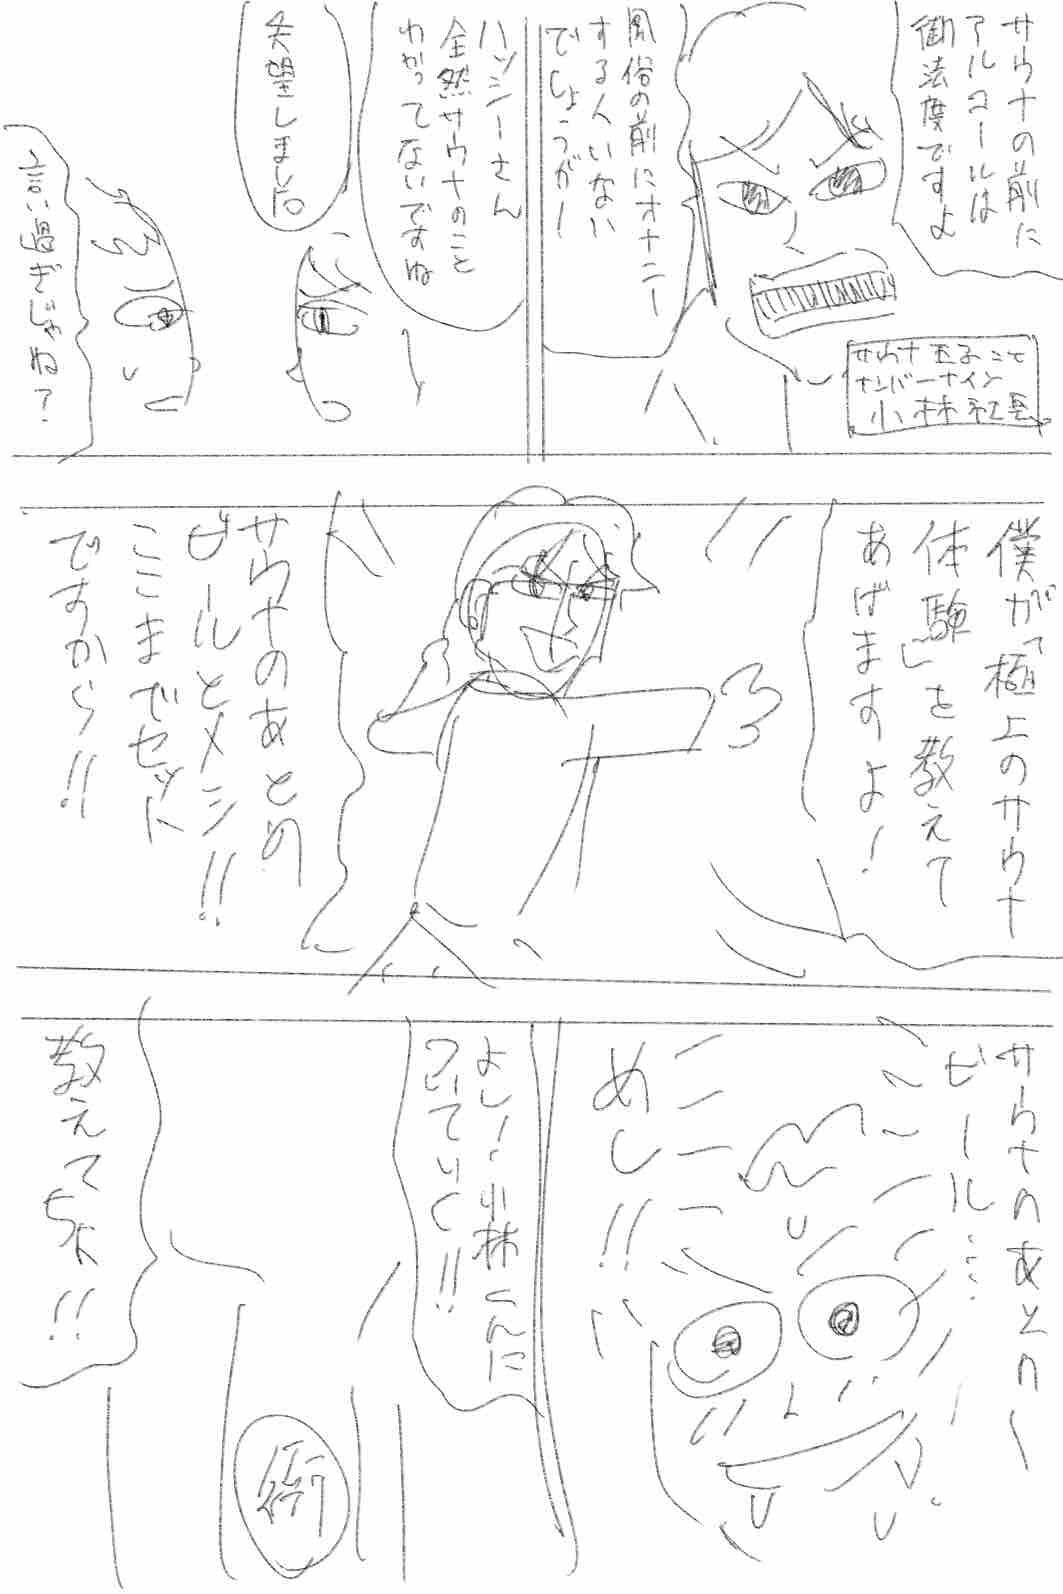 サウナの前に
アルコールは
御法度ですよ
風俗の前にオナニー
する人いない
でしょうがー
サウナ王子こと
ナンバーナイン
小林社長
ハッシーさん
全然サウナのこと
わかってないですね
失望しました
言い過ぎじゃね？
僕が「極上のサウナ
体験」を教えて
あげますよ！
サウナのあとの
ビールとメシ!!
ここまでセット
ですから!!
サウナのあとのー
ビール…
めし!!
よし！小林くんに
ついていく!!
教えてちょ!!
術